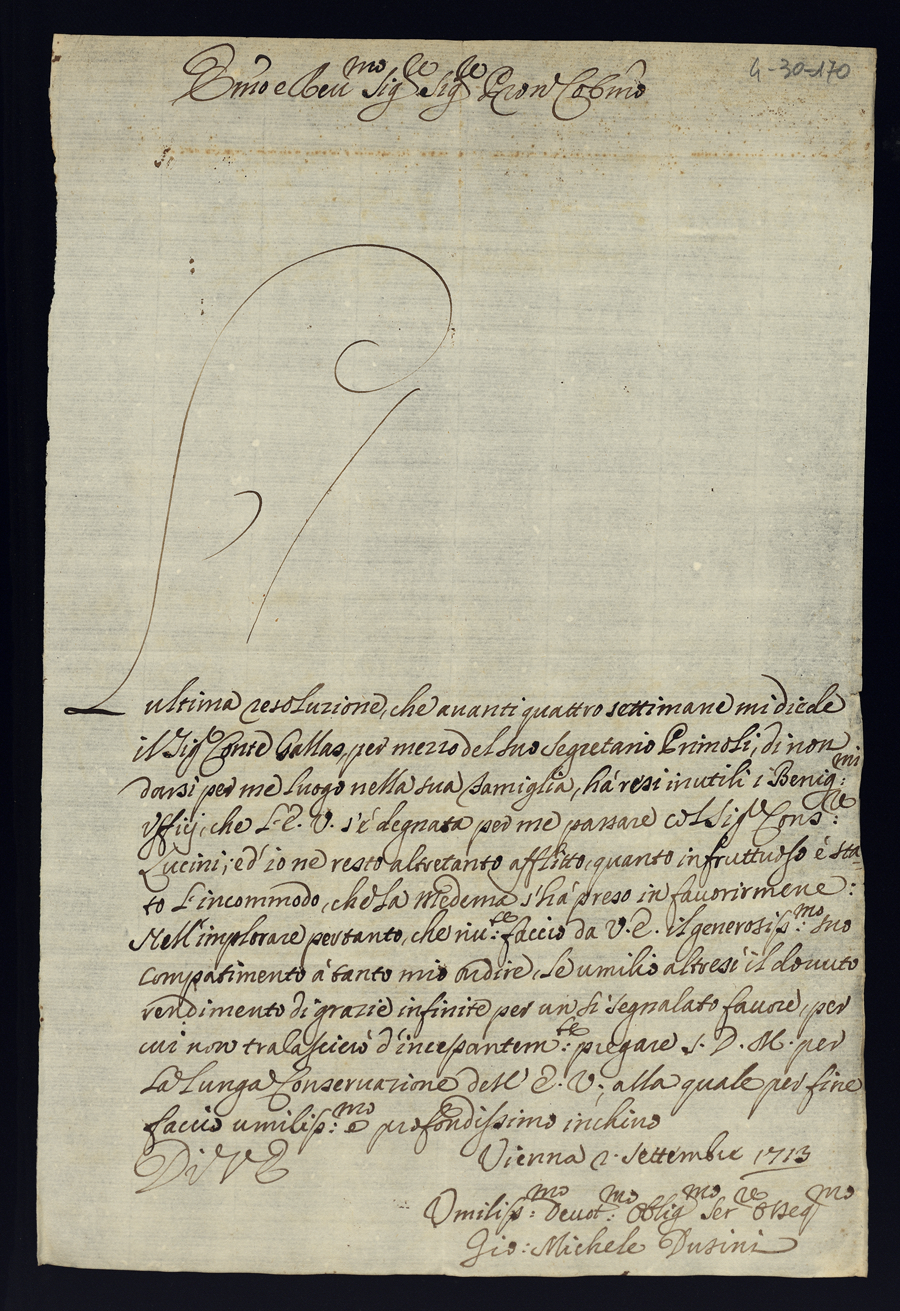 Emo e Reu.mo Sig.re Sig.re Pron Col.mo
4-30-170
L'ultima resoluzione, che auanti quattro settimane mi diede
il Sig.r Conte Gallas, per mezzo del suo Segretario Primoli, di non
darsi per me luogo nella sua Famiglia, há resi inutili i Benig:mi
Vfficij, che l'E. V. s'é degnata per me passare col Sig.r Cons:re
Lucini; ed' io ne resto altretanto afflitto, quanto infruttuoso é sta-
to l'incommodo, che la Medema s'há preso in favorirmene:
Nell' implorare pertanto, che riu:te faccio da V. E. il generosiss:mo suo
compatimento á tanto mio ardire, Le umilio altresi il douuto
rendimento di grazie infinite per un si segnalato fauore, per
cui non tralascieró d'incessantem:te pregare S. D. M. per
la lunga Conseruazione dell' E. V., alla quale per fine
faccio umiliss:mo e profondissimo inchino
Di V E
Vienna 2. Settembre 1713
Vmiliss:mo Deuot:mo Oblig.mo Ser.re Osseq.mo
Gio: Michele Dusini